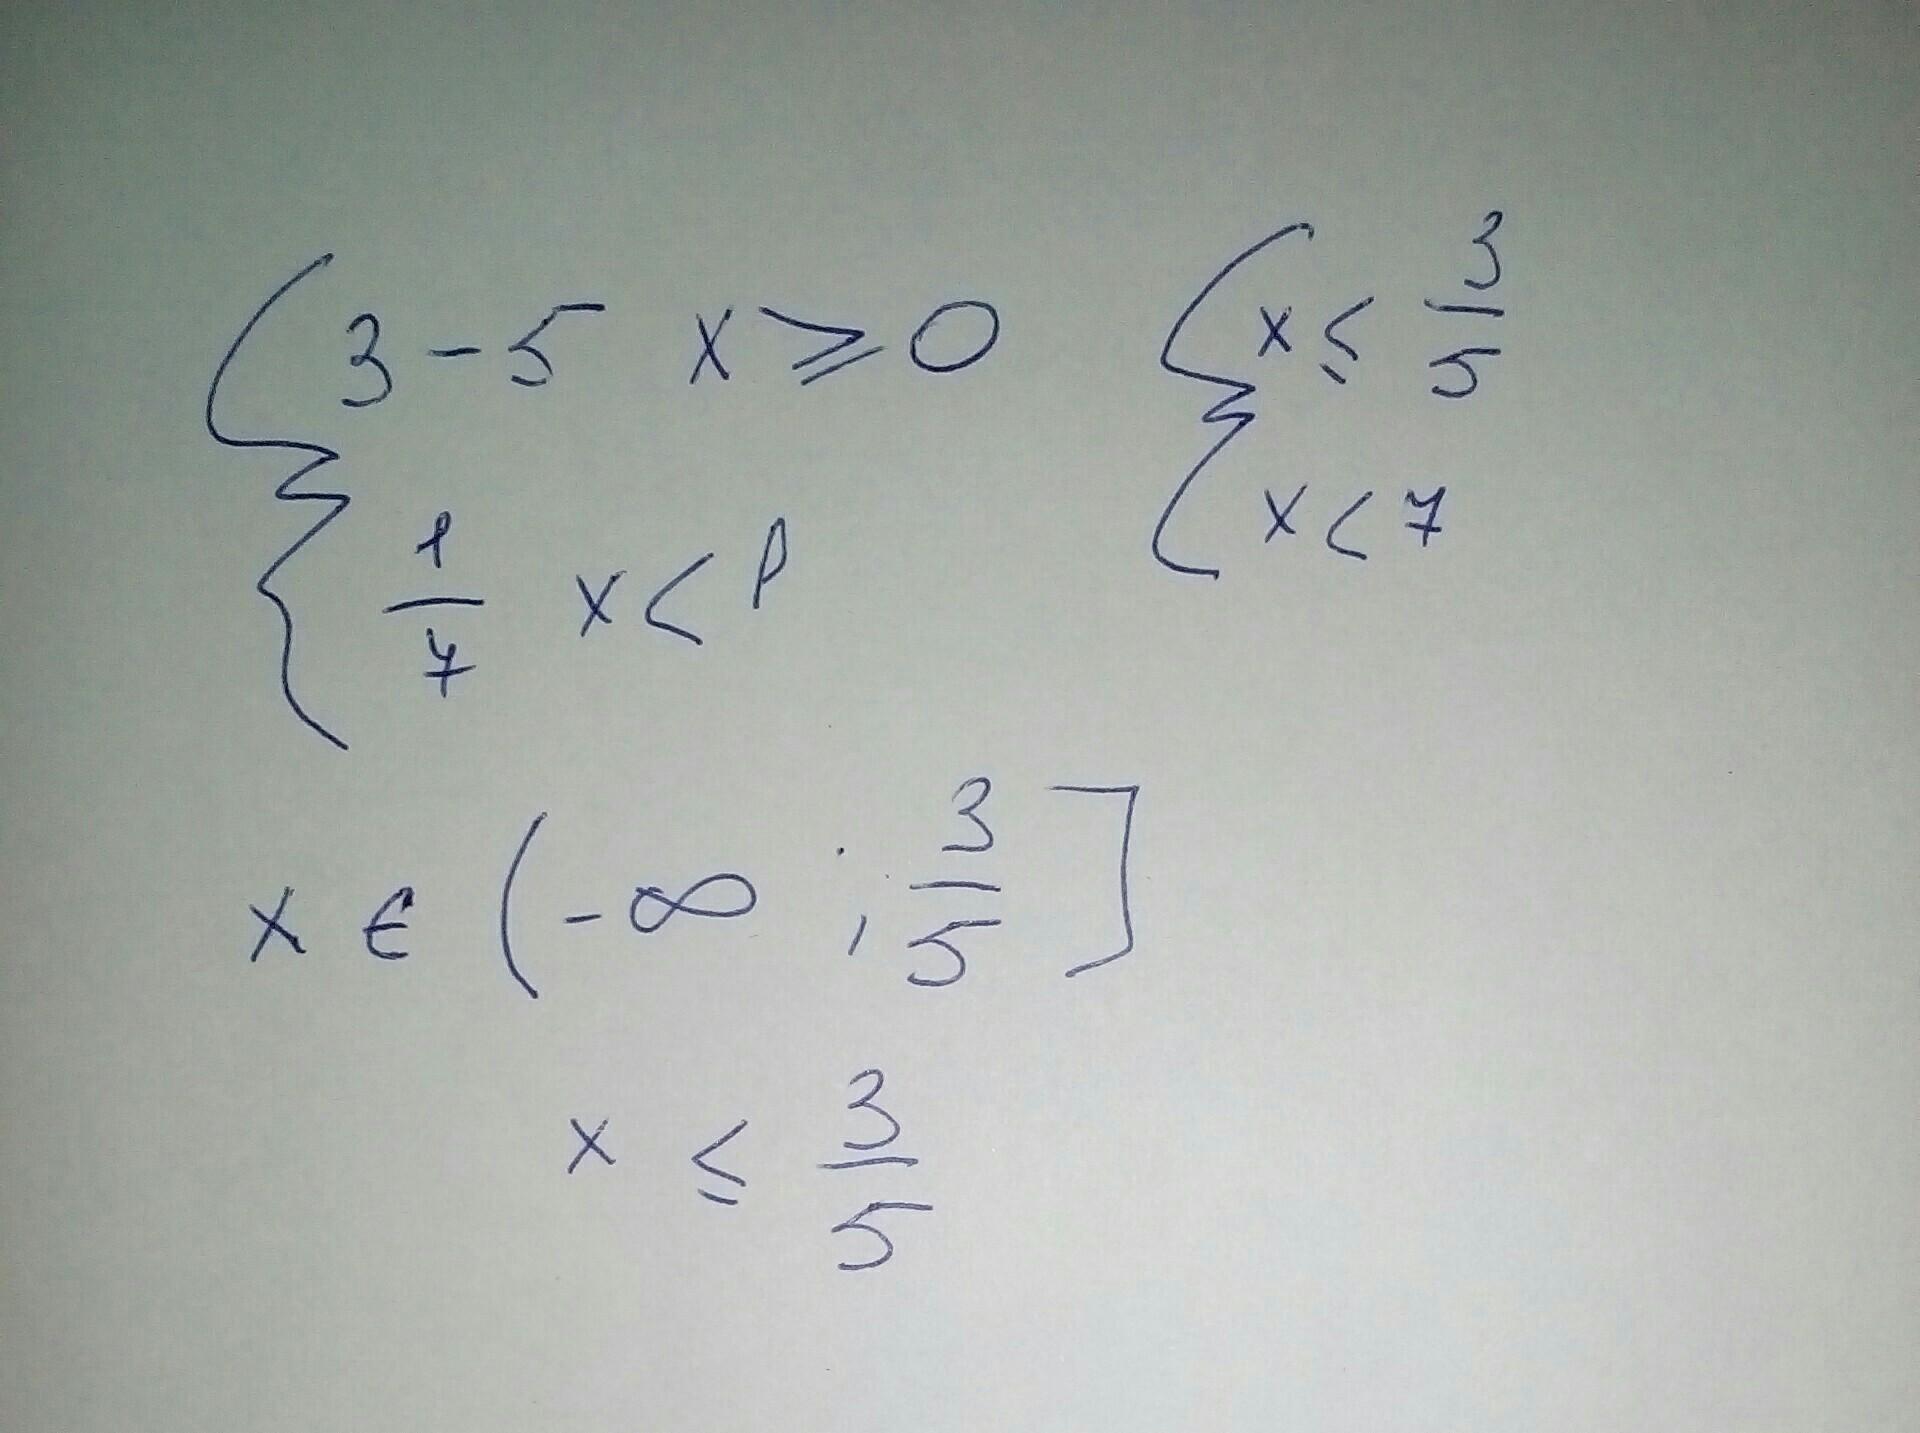 { 3 - 5 x ⩾ 0
{ 1/7 x < 1
{ x ≤ 3/5
{ x < 7
x ∈ (-∞ ; 3/5]
x ≤ 3/5